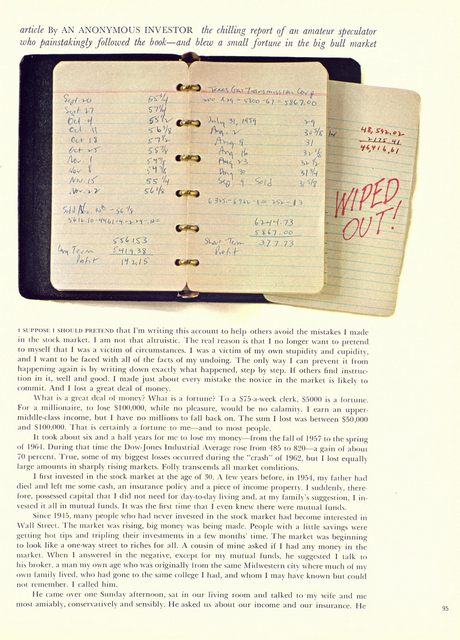 article By AN ANONYMOUS INVESTOR the chilling report of an amateur speculator
who painstakingly followed the book—and blew a small fortune in the big bull market
Sept 20 55 3/4
Sept 27 57 1/4
Oct 4 55 1/2
Oct 11 56 3/8
Oct 18 57 1/2
Oct 25 55 7/8
Nov 1 54 7/8
Nov 8 54 7/8
Nov 15 55 1/4
Nov 22 56 1/2
Sold Nov.
5561.53
5419.38
Long Term
Profit 142.15
Texas Gas Transmission Corp
200 @ 29 - 5800 - 67 = 5867.00
July 31, 1959 29
Aug. 2 30 3/8
Aug 9 31
Aug 16 32 1/8
Aug 23 32 1/2
Aug 30 31 3/4
Sep 9 Sold
6244.73
5867.00
Short Term 377.73
Profit
48,592.02
2175.41
46,416.61
WIPED
OUT!
I SUPPOSE I SHOULD PRETEND that I'm writing this account to help others avoid the mistakes I made
in the stock market. I am not that altruistic. The real reason is that I no longer want to pretend
to myself that I was a victim of circumstances. I was a victim of my own stupidity and cupidity,
and I want to be faced with all of the facts of my undoing. The only way I can prevent it from
happening again is by writing down exactly what happened, step by step. If others find instruc-
tion in it, well and good. I made just about every mistake the novice in the market is likely to
commit. And I lost a great deal of money.
What is a great deal of money? What is a fortune? To a $75-a-week clerk, $5000 is a fortune.
For a millionaire, to lose $100,000, while no pleasure, would be no calamity. I earn an upper-
middle-class income, but I have no millions to fall back on. The sum I lost was between $50,000
and $100,000. That is certainly a fortune to me—and to most people.
It took about six and a half years for me to lose my money—from the fall of 1957 to the spring
of 1964. During that time the Dow-Jones Industrial Average rose from 485 to 820—a gain of about
70 percent. True, some of my biggest losses occurred during the "crash" of 1962, but I lost equally
large amounts in sharply rising markets. Folly transcends all market conditions.
I first invested in the stock market at the age of 30. A few years before, in 1954, my father had
died and left me some cash, an insurance policy and a piece of income property. I suddenly, there-
fore, possessed capital that I did not need for day-to-day living and, at my family's suggestion, I in-
vested it all in mutual funds. It was the first time that I even knew there were mutual funds.
Since 1945, many people who had never invested in the stock market had become interested in
Wall Street. The market was rising, big money was being made. People with a little savings were
getting hot tips and tripling their investments in a few months' time. The market was beginning
to look like a one-way street to riches for all. A cousin of mine asked if I had any money in the
market. When I answered in the negative, except for my mutual funds, he suggested I talk to
his broker, a man my own age who was originally from the same Midwestern city where much of my
own family lived, who had gone to the same college I had, and whom I may have known but could
not remember. I called him.
He came over one Sunday afternoon, sat in our living room and talked to my wife and me
most amiably, conservatively and sensibly. He asked us about our income and our insurance. He
95